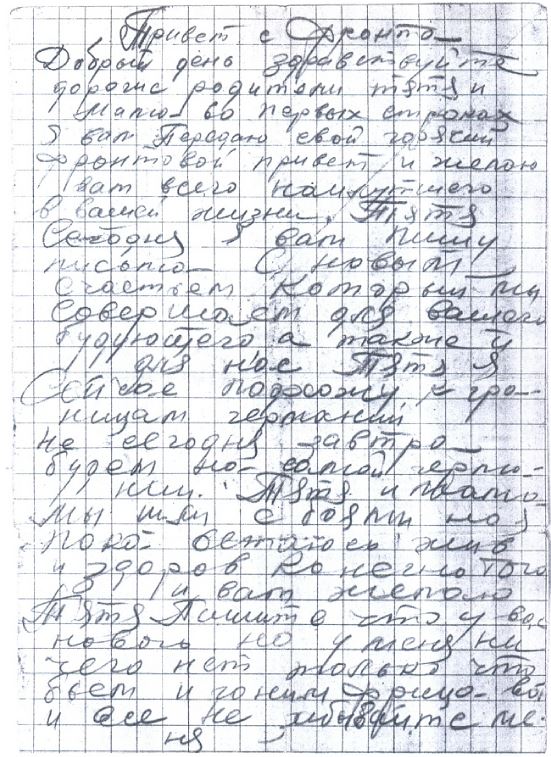 Привет с фронта
Добрый день здравствуйте
дорогие родители тятя и
мама во первых строках
я вам Передаю свой горячий
фронтовой привет и желаю
вам всего наилутшего
в вашей жизни. Тятя
Сегодня я вам пишу
письмо С новым
счастьем который мы
совершаем для вашего
будующего а также и
для нас Тятя я
Сейчас подхожу к гра-
ницам германии
не сегодня завтра
будем на самой герма-
нии. Тятя и мама
мы шли с боями но я
пока остаюсь жив
и здоров Конешно того
и вам желаю
Тятя Пишите что у вас
нового но у меня ни
чего нет только что
бьем и гоним фрица
и все не забывайте ме-
ня